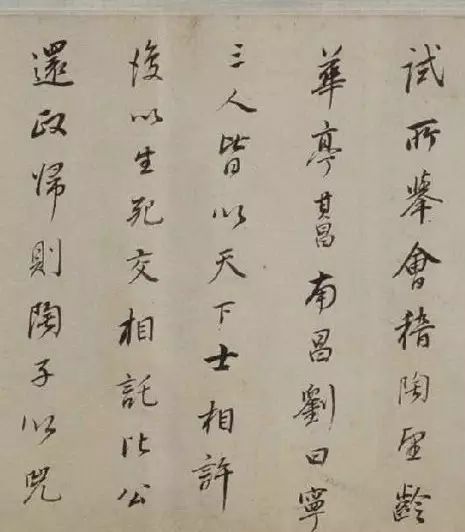 試所舉會稽陶望齡
華亭其昌南昌劉曰寧
三人皆以天下士相許
後以生死交相託比公
還政歸則陶子以兄